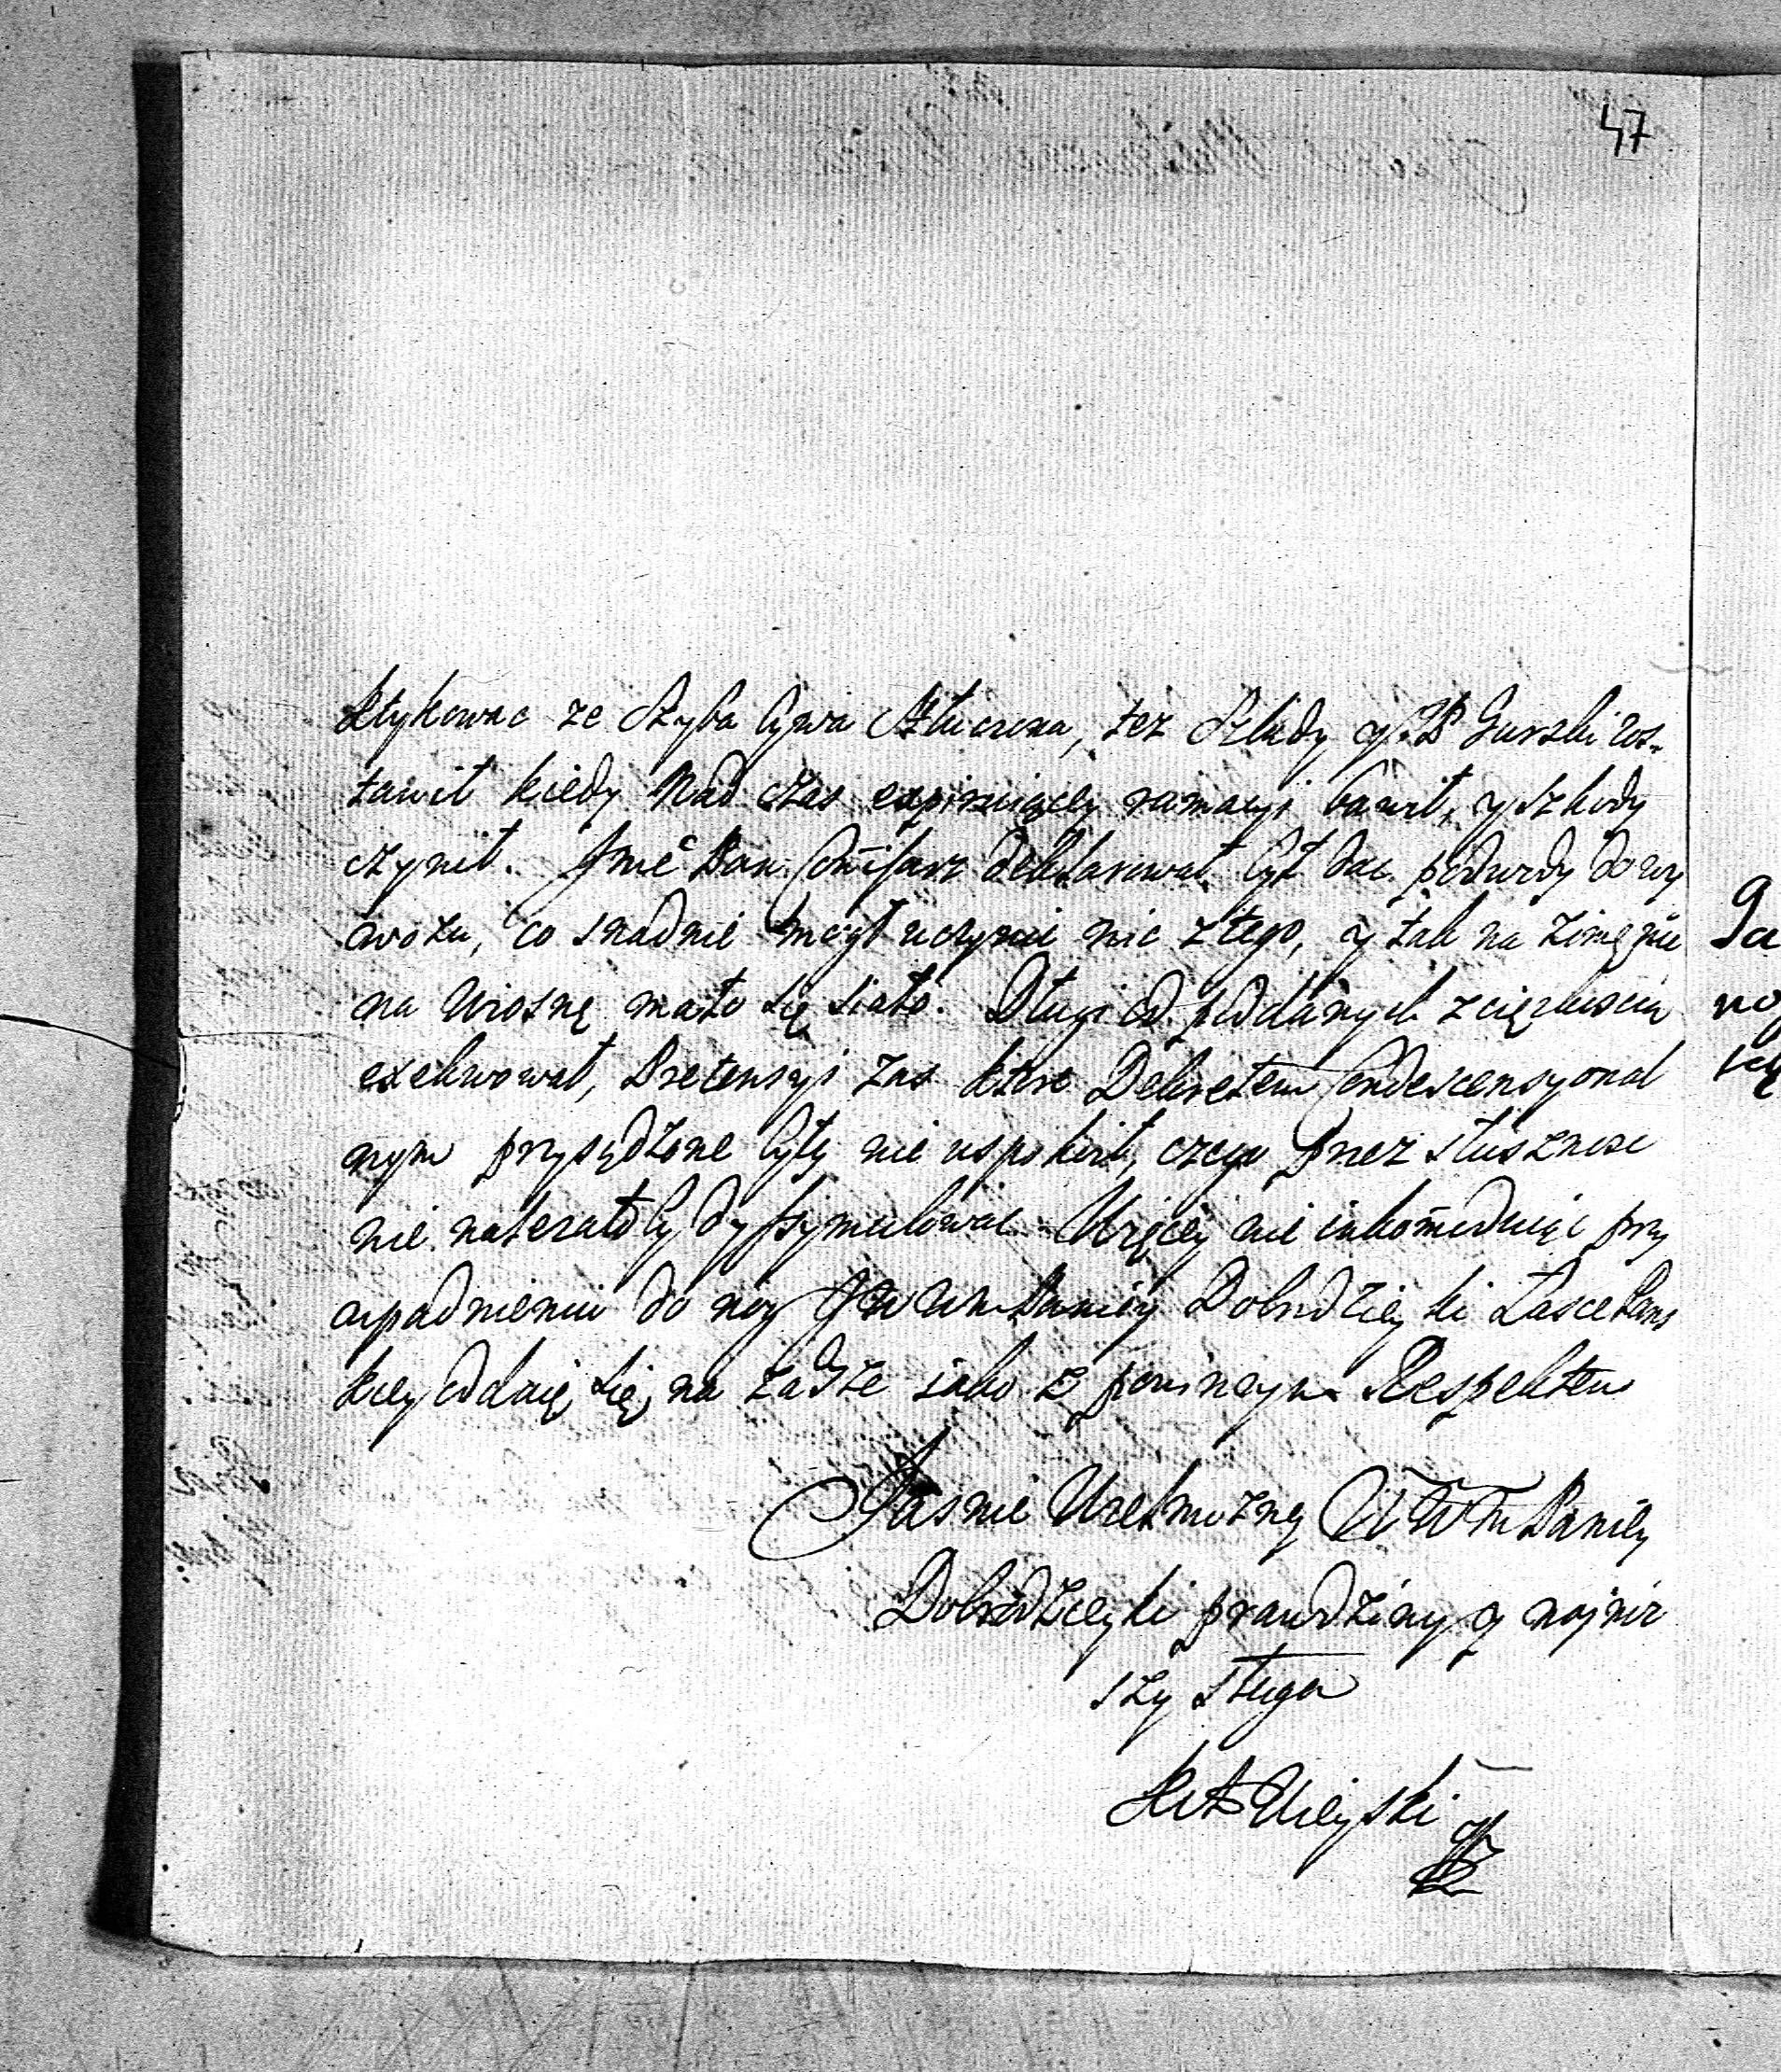 47
ktykowac ze Szyba bywa Stłuczona, tez Szkody JP Gurski zos-
tawił kiedy Nad czas expiruiącey rumacyi bawił, y Szkody
czynił. Jmć Pan Comisarz deklarował był dac podwody do wy
wozu, co snadnie mógł uczynic nic z tego, y tak na zimę nie
na Wiosnę mało się siało. Długi od poddanych z cięzkoscią
exekwował, Pretensyi zas ktore Dekretem Condescensyonal
nym przysądzone były nie uspokoił, czego przez słusznosc
nie nalezałoby dyssymulowac. Więcey nie inkomoduiąc przy
upadnieniu do nog JW WM Paniey Dobrodzieyki Łasce Pans
kiey oddaię się na zadze iako z powinnym Respektem
Jasnie Wielmozney WWM Paniey
Dobrodzieyki prawdziwy y najniz
szy sługa
Uieyski